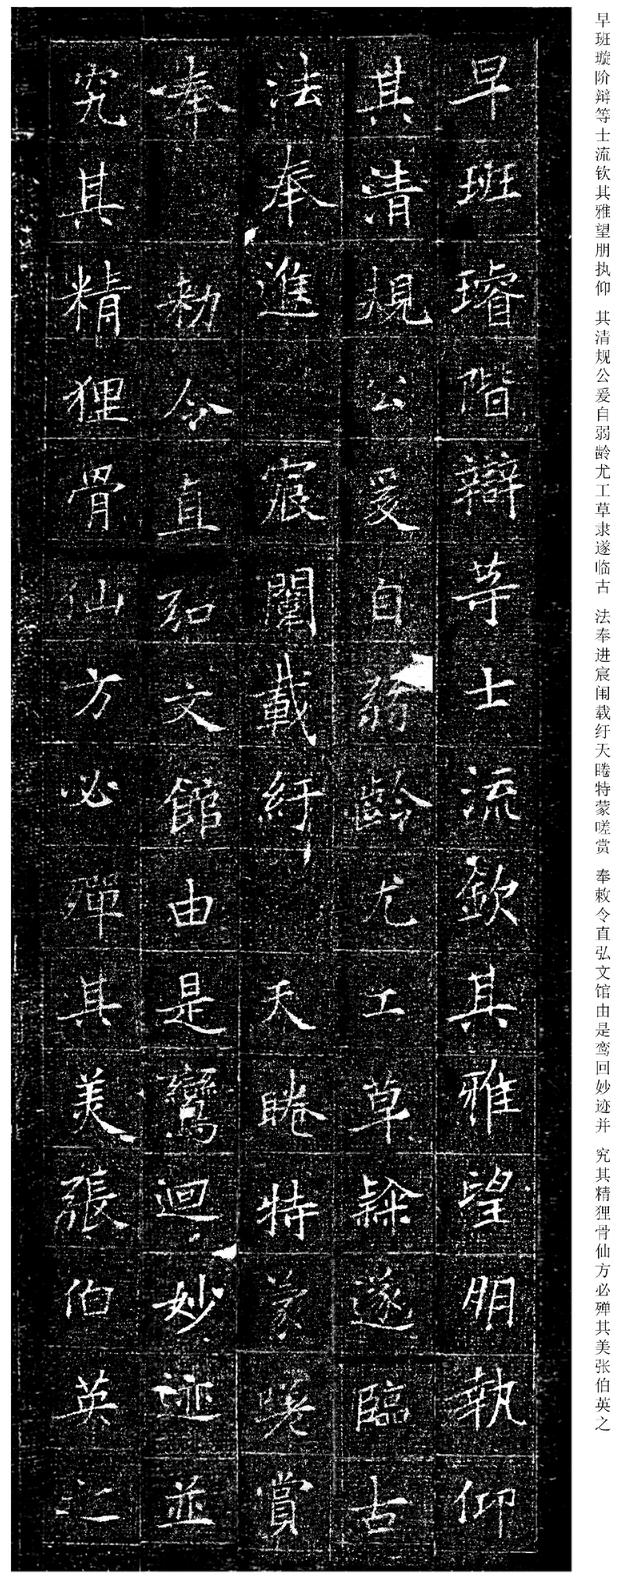 早班璿階辯等士流欽其雅望朋執仰
其清規公爰自弱齡尤工草隸遂臨古
法奉進宸闈載紆天睠特蒙嗟賞
奉勑令直弘文館由是鸞迴妙迹並
究其精狸骨仙方必殫其美張伯英之
早班璇阶辩等士流钦其雅望朋执仰 其清规公爰自弱龄尤工草隶遂临古 法奉进宸闱载纡天睠特蒙嗟赏 奉敕令直弘文馆由是鸾回妙迹并 究其精狸骨仙方必殚其美张伯英之